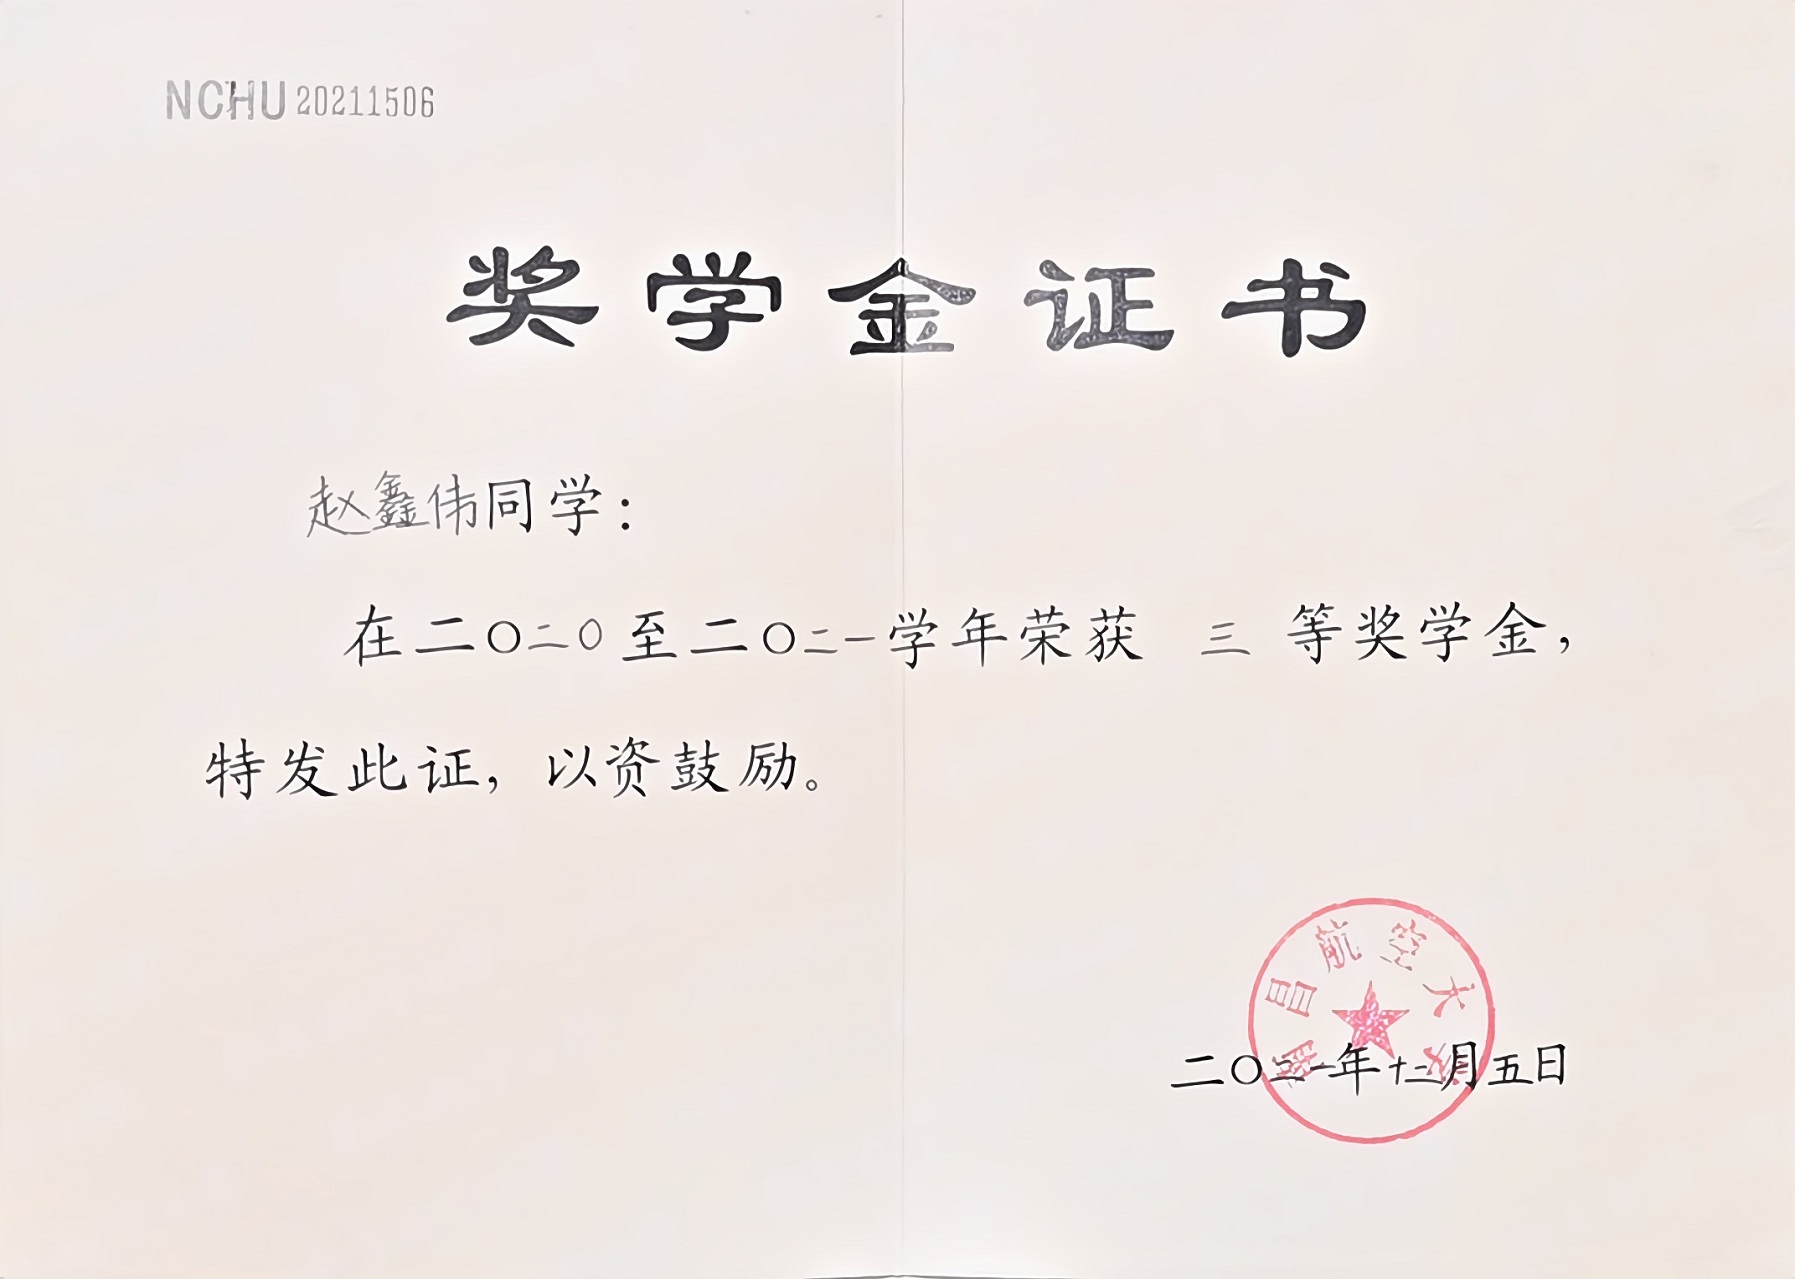 NCHU 20211506
奖学金证书
赵鑫伟同学：
在二〇二〇至二〇二一学年荣获 三 等奖学金，
特发此证，以资鼓励。
南昌航空大学
二〇二一年十二月五日